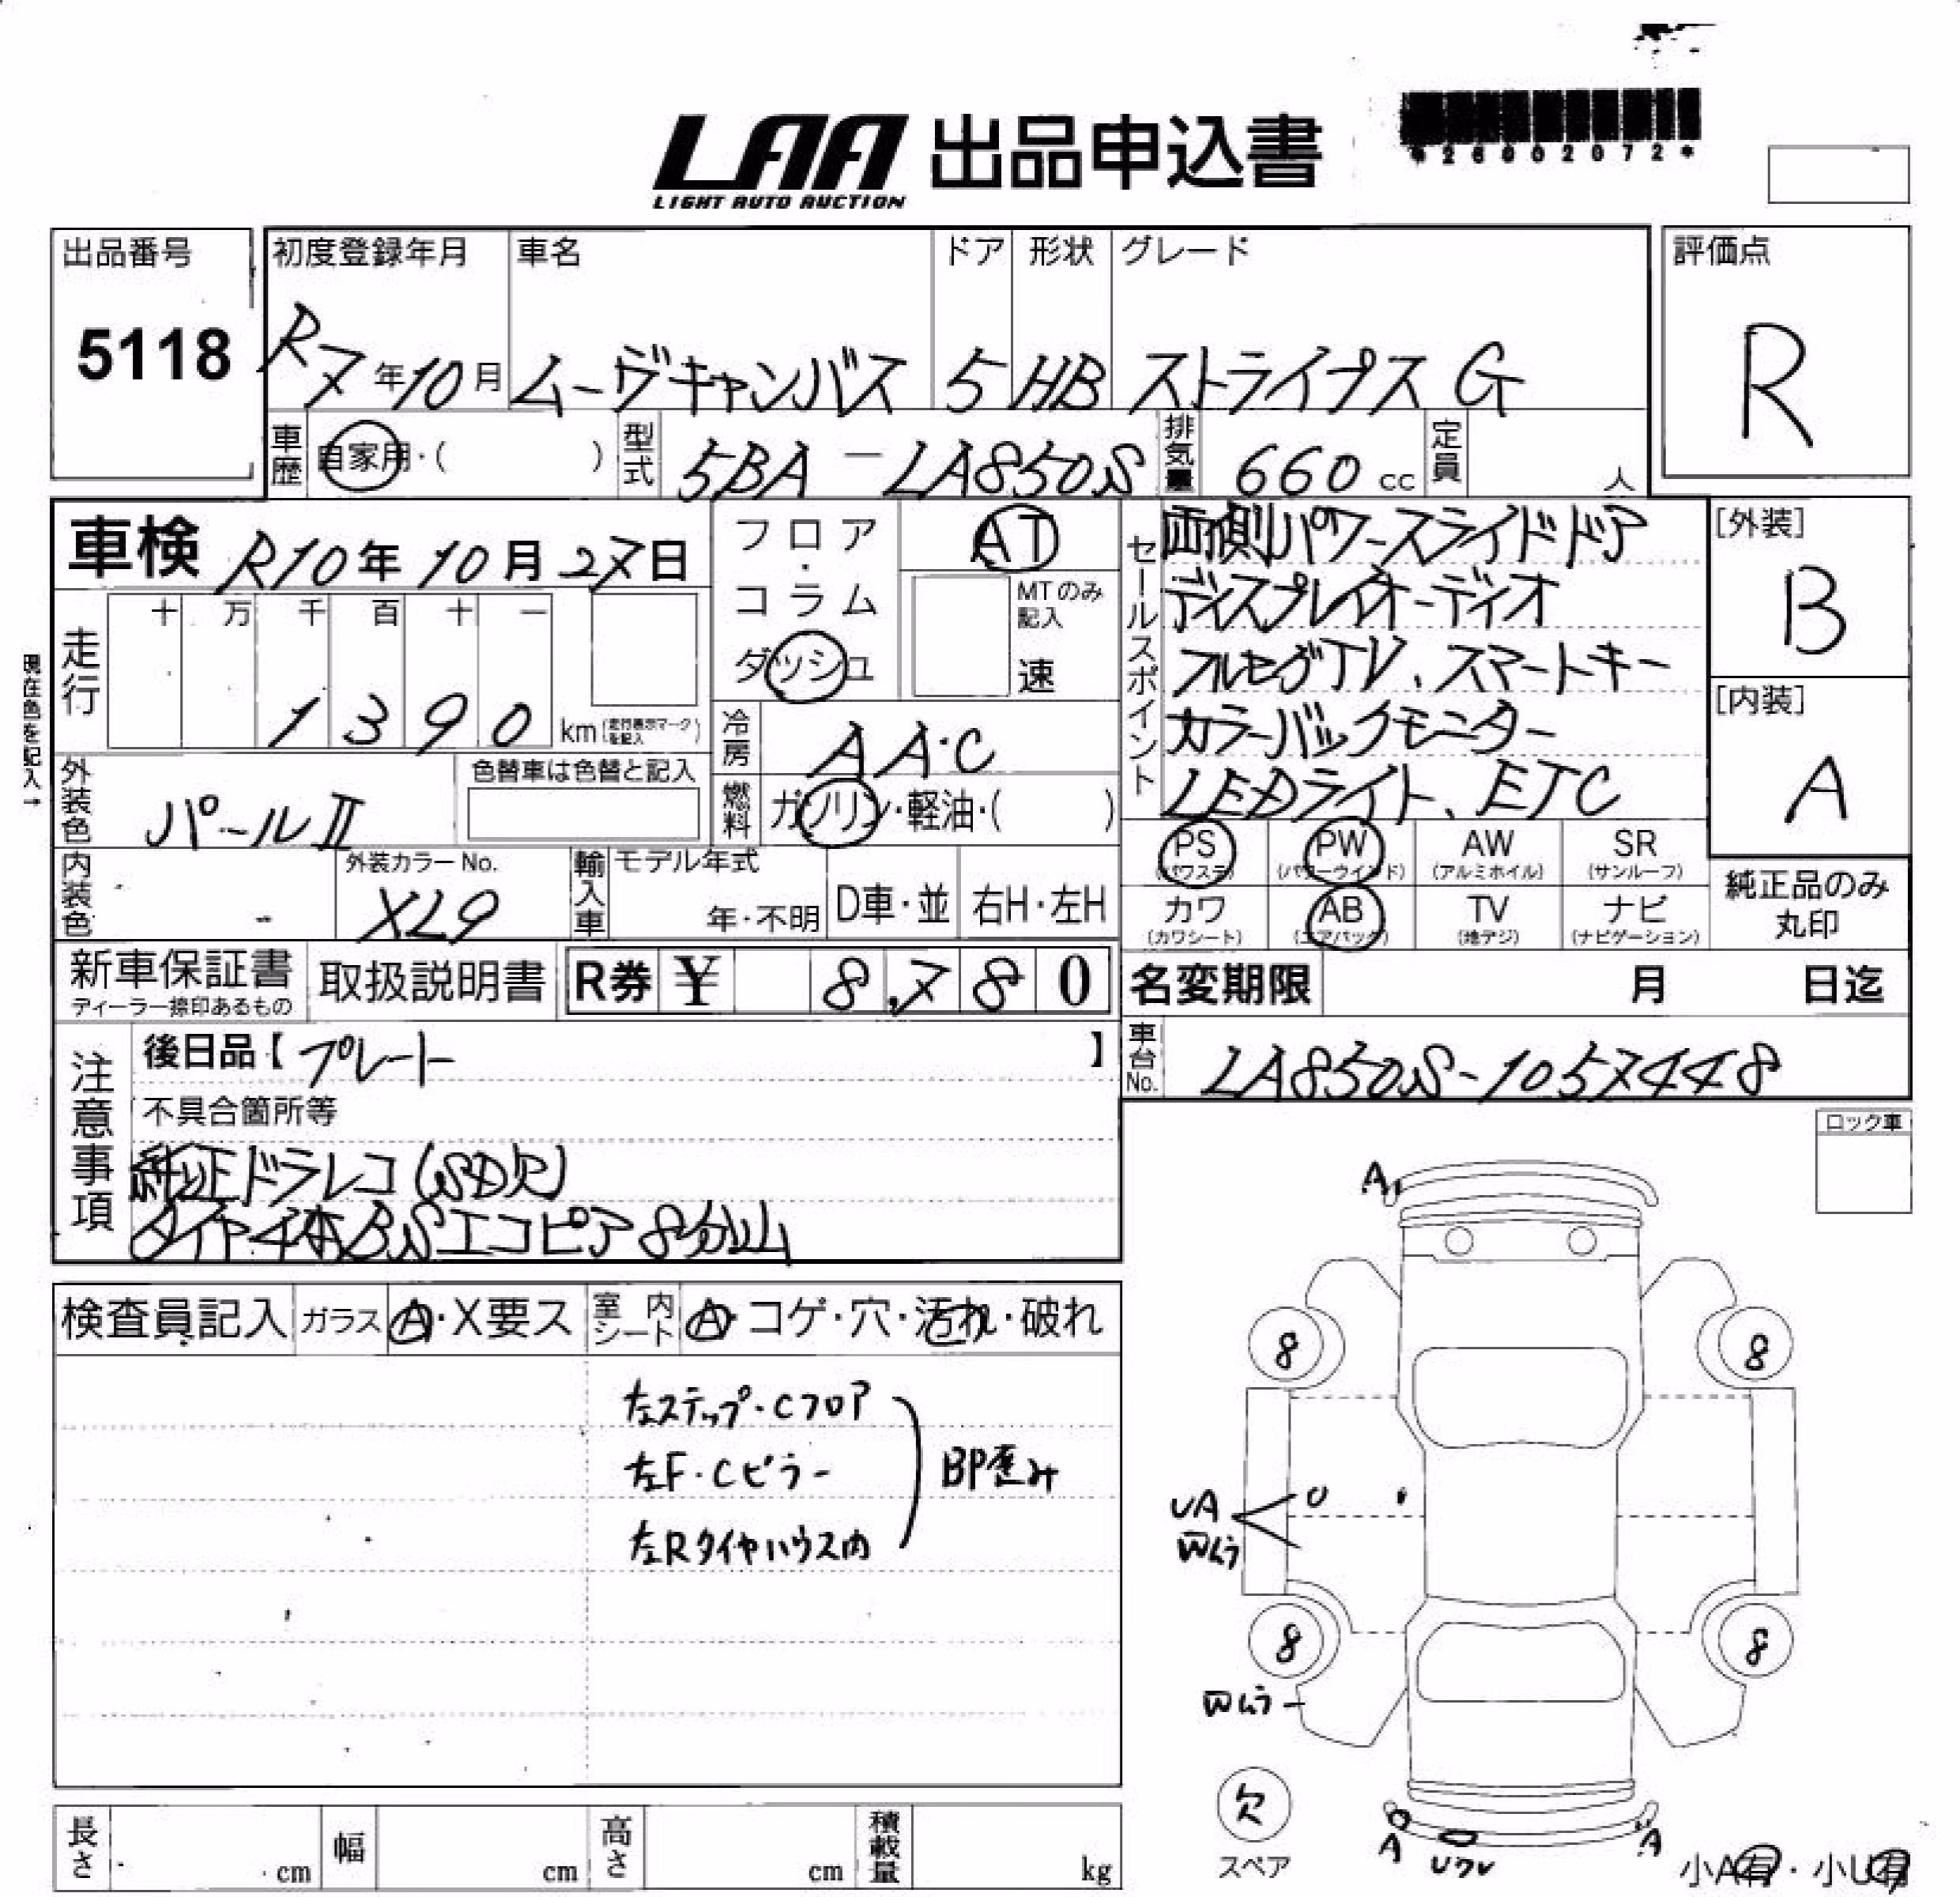 LAA 出品申込書
LIGHT AUTO AUCTION
*26002072*
出品番号
5118
初度登録年月
R7年10月
車名
ムーヴキャンバス
ドア
5
形状
HB
グレード
ストライプス G
評価点
R
車歴
自家用・( )
型式
5BA - LA850S
排気量
660 cc
定員
人
車検 R10年 10月 27日
フロア・コラム
ダッシュ
AT
MTのみ記入
速
セールスポイント
両側パワースライドドア
ディスプレイオーディオ
フルセグTV、スマートキー
カラーバックモニター
LEDライト、ETC
[外装]
B
[内装]
A
現在色を記入→
走行
十 万 千 百 十 一
1 3 9 0 km (走行表示マークを記入)
冷房
AA・C
外装色
パールⅡ
色替車は色替と記入
燃料
ガソリン・軽油・( )
内装色
-
外装カラーNo.
XL9
輸入車
モデル年式
年・不明
D車・並
右H・左H
PS (パワステ)
PW (パワーウインド)
AW (アルミホイル)
SR (サンルーフ)
カワ (カワシート)
AB (エアバック)
TV (地デジ)
ナビ (ナビゲーション)
純正品のみ
丸印
新車保証書
ディーラー捺印あるもの
取扱説明書
R券 ¥ 8,780
名変期限 月 日迄
車台No.
LA850S-1057448
注意事項
後日品【プレート 】
不具合箇所等
純正ドラレコ(SD欠)
タイヤ4本BSエコピア8分山
ロック車
検査員記入
ガラス A・X要ス
室内シート A・コゲ・穴・汚れ・破れ
左ステップ・Cフロア
左F・Cピラー
左Rタイヤハウス内
BP歪み
A
8
8
UA
Wムラ
U
8
8
Wムラ
欠
スペア
A
Uワレ
A
小A有・小U有
長さ cm
幅 cm
高さ cm
積載量 kg